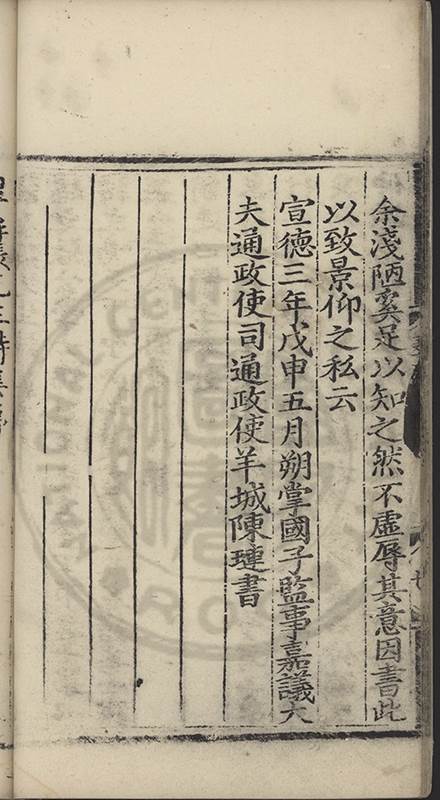 余淺陋奚足以知之然不虛辱其意因書此
以致景仰之私云
宣德三年戊申五月朔掌國子監事嘉議大
夫通政使司通政使羊城陳璉書